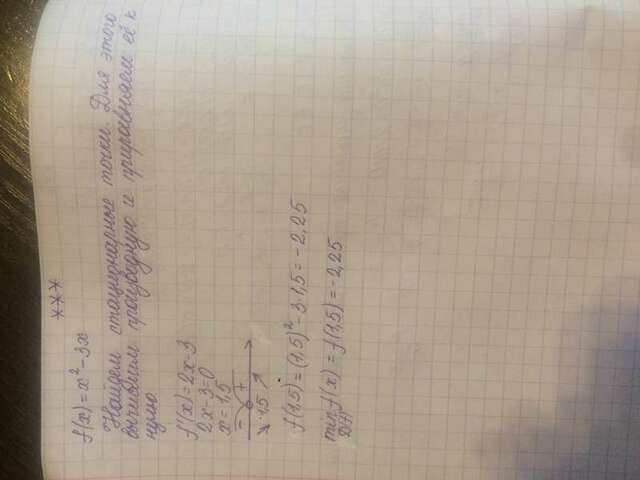 ***
f(x) = x² - 3x
Найдем стационарные точки. Для этого
вычислим производную и приравняем её к
нулю
f'(x) = 2x-3
2x-3=0
x = 1,5
- +
1,5
f(1,5) = (1,5)² - 3·1,5 = -2,25
min f(x) = f(1,5) = -2,25